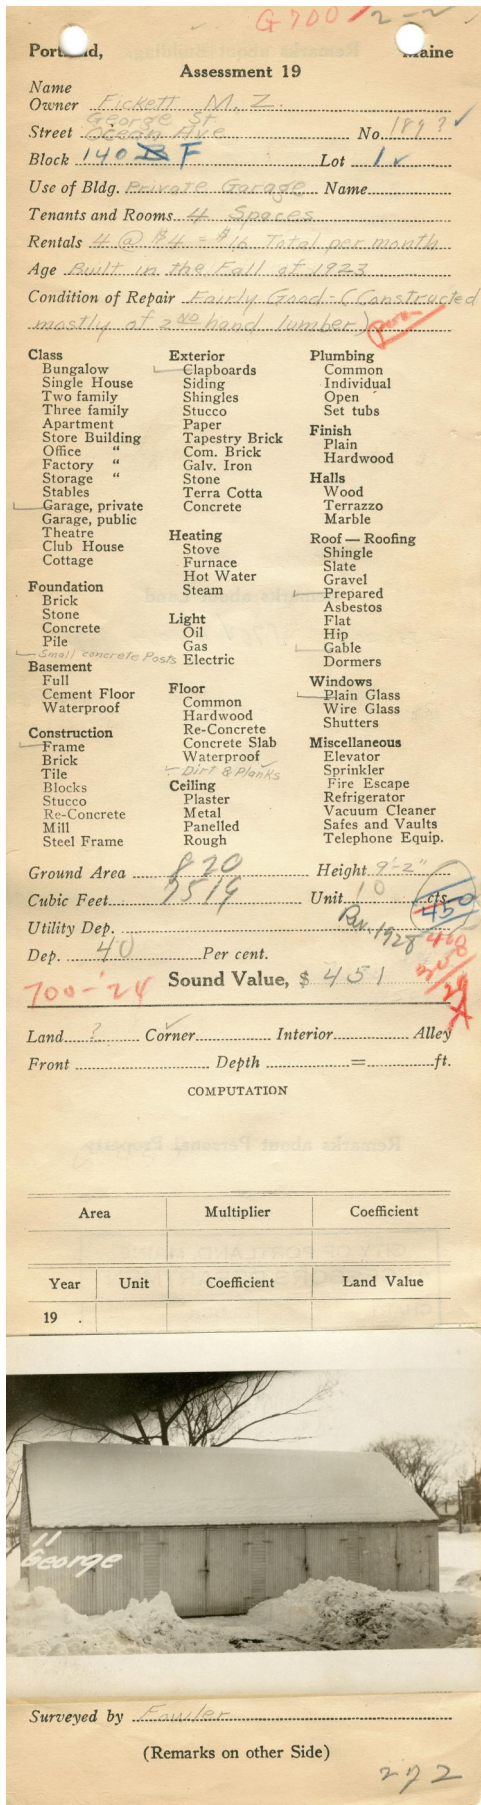 G 700 / 2-2
Portland, Maine
Assessment 19
Name
Owner Fickett M. Z.
George St.
Street Ocean Ave No. 189 ? ✓
Block 140 B F Lot 1 ✓
Use of Bldg. Private Garage Name
Tenants and Rooms 4 Spaces
Rentals 4 @ $4 = $16 Total per month
Age Built in the Fall of 1923
Condition of Repair Fairly Good - (Constructed
mostly of 2nd hand lumber.) poor
Class
Bungalow
Single House
Two family
Three family
Apartment
Store Building
Office "
Factory "
Storage "
Stables
Garage, private
Garage, public
Theatre
Club House
Cottage
Foundation
Brick
Stone
Concrete
Pile
Small concrete Posts
Basement
Full
Cement Floor
Waterproof
Construction
Frame
Brick
Tile
Blocks
Stucco
Re-Concrete
Mill
Steel Frame
Exterior
Clapboards
Siding
Shingles
Stucco
Paper
Tapestry Brick
Com. Brick
Galv. Iron
Stone
Terra Cotta
Concrete
Heating
Stove
Furnace
Hot Water
Steam
Light
Oil
Gas
Electric
Floor
Common
Hardwood
Re-Concrete
Concrete Slab
Waterproof
Dirt & Planks
Ceiling
Plaster
Metal
Panelled
Rough
Plumbing
Common
Individual
Open
Set tubs
Finish
Plain
Hardwood
Halls
Wood
Terrazzo
Marble
Roof — Roofing
Shingle
Slate
Gravel
Prepared
Asbestos
Flat
Hip
Gable
Dormers
Windows
Plain Glass
Wire Glass
Shutters
Miscellaneous
Elevator
Sprinkler
Fire Escape
Refrigerator
Vacuum Cleaner
Safes and Vaults
Telephone Equip.
Ground Area 820 Height 9'-2"
Cubic Feet 7519 Unit 10 cts.
450
Utility Dep.
Rev. 1928
Dep. 40 Per cent.
Sound Value, $ 451
700-'24
Land ? Corner Interior Alley
Front Depth = ft.
COMPUTATION
Area Multiplier Coefficient
Year Unit Coefficient Land Value
19 .
11
George
Surveyed by Fowler
(Remarks on other Side)
272